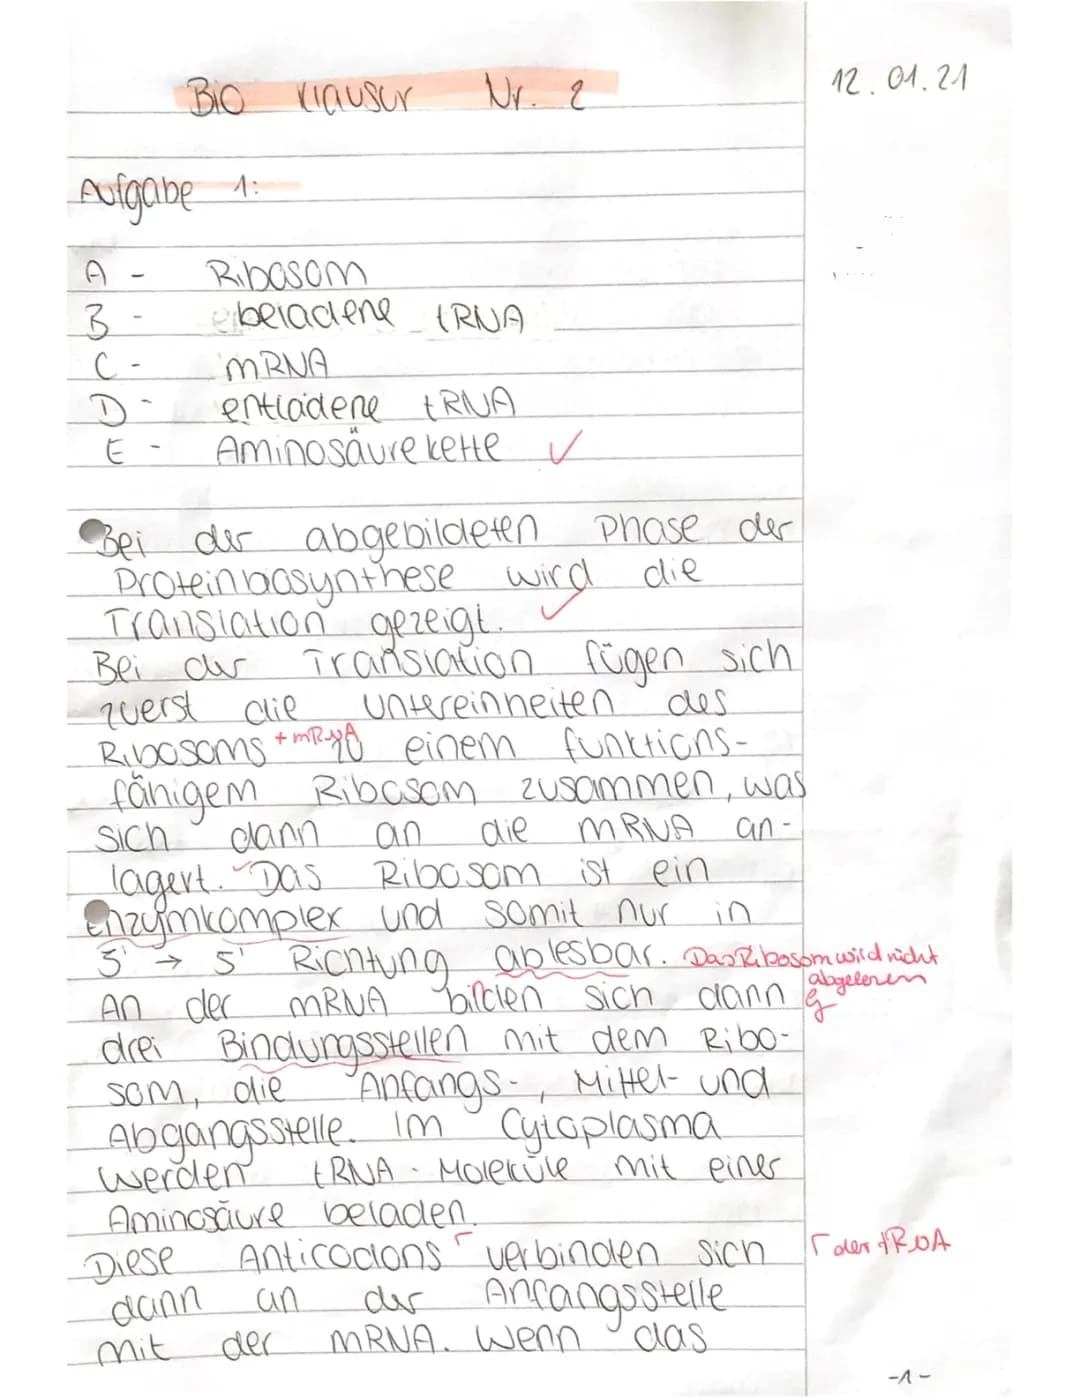 Bio Klausur Nr. 2
12.01.21
Aufgabe 1:
A - Ribosom
B - beladene tRNA
C - mRNA
D - entladene tRNA
E - Aminosäurekette ✓
Bei der abgebildeten Phase der
Proteinbiosynthese wird die
Translation gezeigt. ✓
Bei der Translation fügen sich
zuerst die Untereinheiten des
Ribosoms + mRNA zu einem funktions-
fähigem Ribosom zusammen, was
sich dann an die mRNA an-
lagert. Das Ribosom ist ein
Enzymkomplex und somit nur in
3' → 5' Richtung ablesbar. Das Ribosom wird nicht
abgelesen
An der mRNA bilden sich dann
drei Bindungsstellen mit dem Ribo-
som, die Anfangs-, Mittel- und
Abgangsstelle. Im Cytoplasma
werden tRNA-Moleküle mit einer
Aminosäure beladen.
Diese Anticodons ┌ verbinden sich ┌ der tRNA
dann an der Anfangsstelle
mit der mRNA. Wenn das
-1-